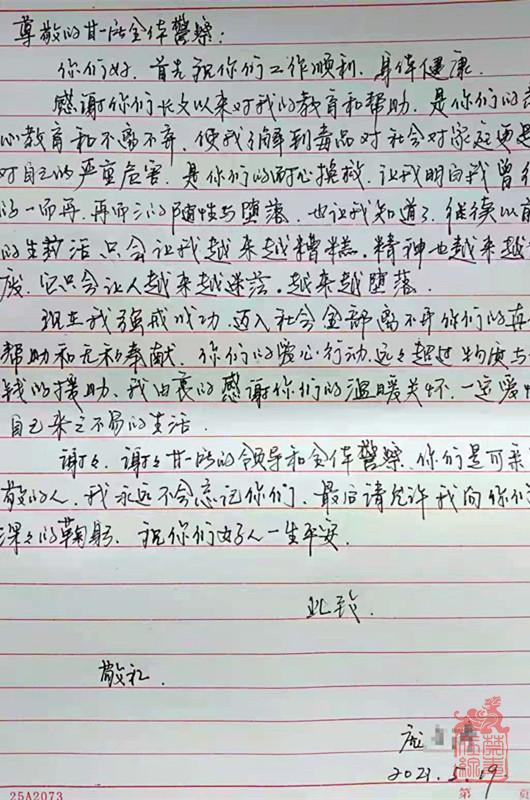 尊敬的甘一所全体警察:
你们好.首先祝你们工作顺利.身体健康.
感谢你们长久以来对我的教育和帮助.是你们的
心教育和不离不弃.使我了解到毒品对社会对家庭更是
对自己的严重危害.是你们的耐心挽救.让我明白我曾
的一而再.再而三的随性与堕落.也让我知道了.继续以前
的生活只会让我越来越糟糕.精神也越来越
废.它只会让人越来越迷茫.越来越堕落.
现在我强戒成功.迈入社会全部离不开你们的
帮助和无私奉献.你们的暖心行动.远々超过物质与
钱的援助.我由衷的感谢你们的温暖关怀.一定爱
自己来之不易的生活.
谢々.谢々甘一所的领导和全体警察.你们是可亲
敬的人.我永远不会忘记你们.最后请允许我向你们
深々的鞠躬.祝你们好人一生平安.
此致.
敬礼.
庞
2021.5.19.
25A2073
第 页